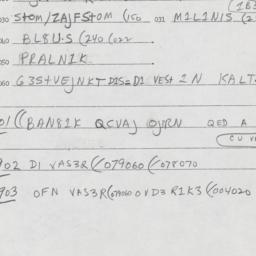 (163
030 STOM/ZAJFSTOM (150 031 MILINIS (2
040 BL8US (240 (022
050 PRALNIK
060 G3StVEJNKT DIS=DI VESt IN KALT
01 ((BAN81K QCVAJ OJRN QED A
(CU V
902 DI VAS3R ((079060 ((078070
903 OFN VAS3R (079060 OVD3RIK3 ((004020